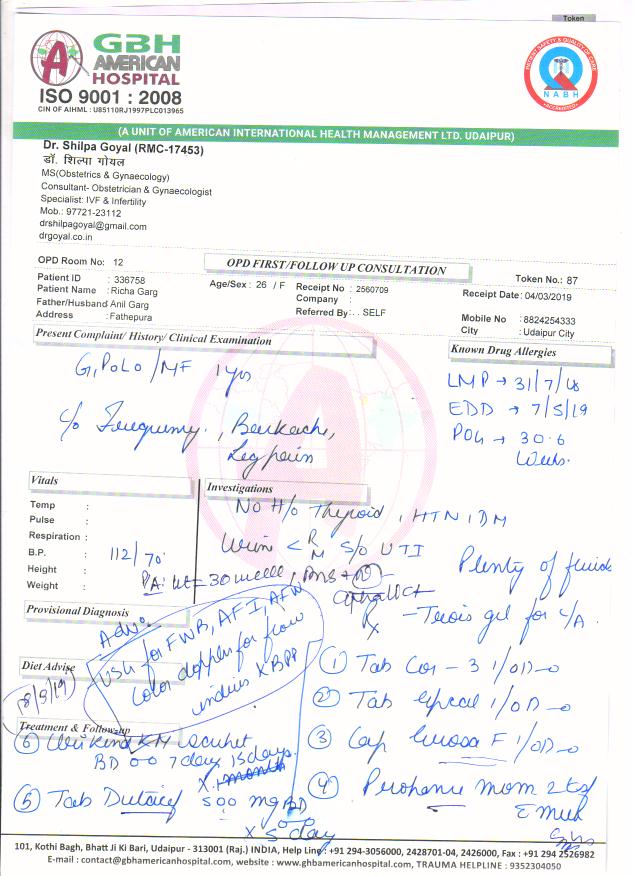 Token
GBH
AMERICAN
HOSPITAL
ISO 9001 : 2008
CIN OF AIHML : U85110RJ1997PLC013965
PATIENT SAFETY & QUALITY OF CARE
NABH
ACCREDITED
(A UNIT OF AMERICAN INTERNATIONAL HEALTH MANAGEMENT LTD. UDAIPUR)
Dr. Shilpa Goyal (RMC-17453)
डॉ. शिल्पा गोयल
MS(Obstetrics & Gynaecology)
Consultant- Obstetrician & Gynaecologist
Specialist: IVF & Infertility
Mob.: 97721-23112
drshilpagoyal@gmail.com
drgoyal.co.in
OPD Room No: 12
OPD FIRST/FOLLOW UP CONSULTATION
Token No.: 87
Patient ID : 336758
Age/Sex : 26 / F
Receipt No : 2560709
Receipt Date: 04/03/2019
Patient Name : Richa Garg
Company :
Father/Husband Anil Garg
Referred By: . . SELF
Mobile No : 8824254333
Address : Fathepura
City : Udaipur City
Present Complaint/ History/ Clinical Examination
Known Drug Allergies
G1P0L0 / MF 1 yrs
LMP → 31/7/18
EDD → 7/5/19
POG → 30.6
Weeks.
c/o Frequency, Backache,
Leg pain
Vitals
Investigations
Temp :
Pulse :
Respiration :
B.P. : 112/70
Height :
Weight :
No H/o Thyroid, HTN, DM
Urine < R
M S/o UTI
Plenty of fluids
PA: ut = 30 week,
Rx
gel for L/A.
Provisional Diagnosis
Advo.
USG for FWB, AFI, AFW
Color doppler for flow
indices x BPP
Diet Advise
8/3/19
① Tab Cor-3 1/OD
② Tab 1/OD
③ Cap F 1/OD
④ mom 2tsf
c̄ milk
Treatment & Follow-up
⑥ KM Sachet
BD 7 days 15 days.
x 1 month
⑤ Tab 500 mg BD
x 5 day
101, Kothi Bagh, Bhatt Ji Ki Bari, Udaipur - 313001 (Raj.) INDIA, Help Line : +91 294-3056000, 2428701-04, 2426000, Fax : +91 294 2526982
E-mail : contact@gbhamericanhospital.com, website : www.gbhamericanhospital.com, TRAUMA HELPLINE : 9352304050